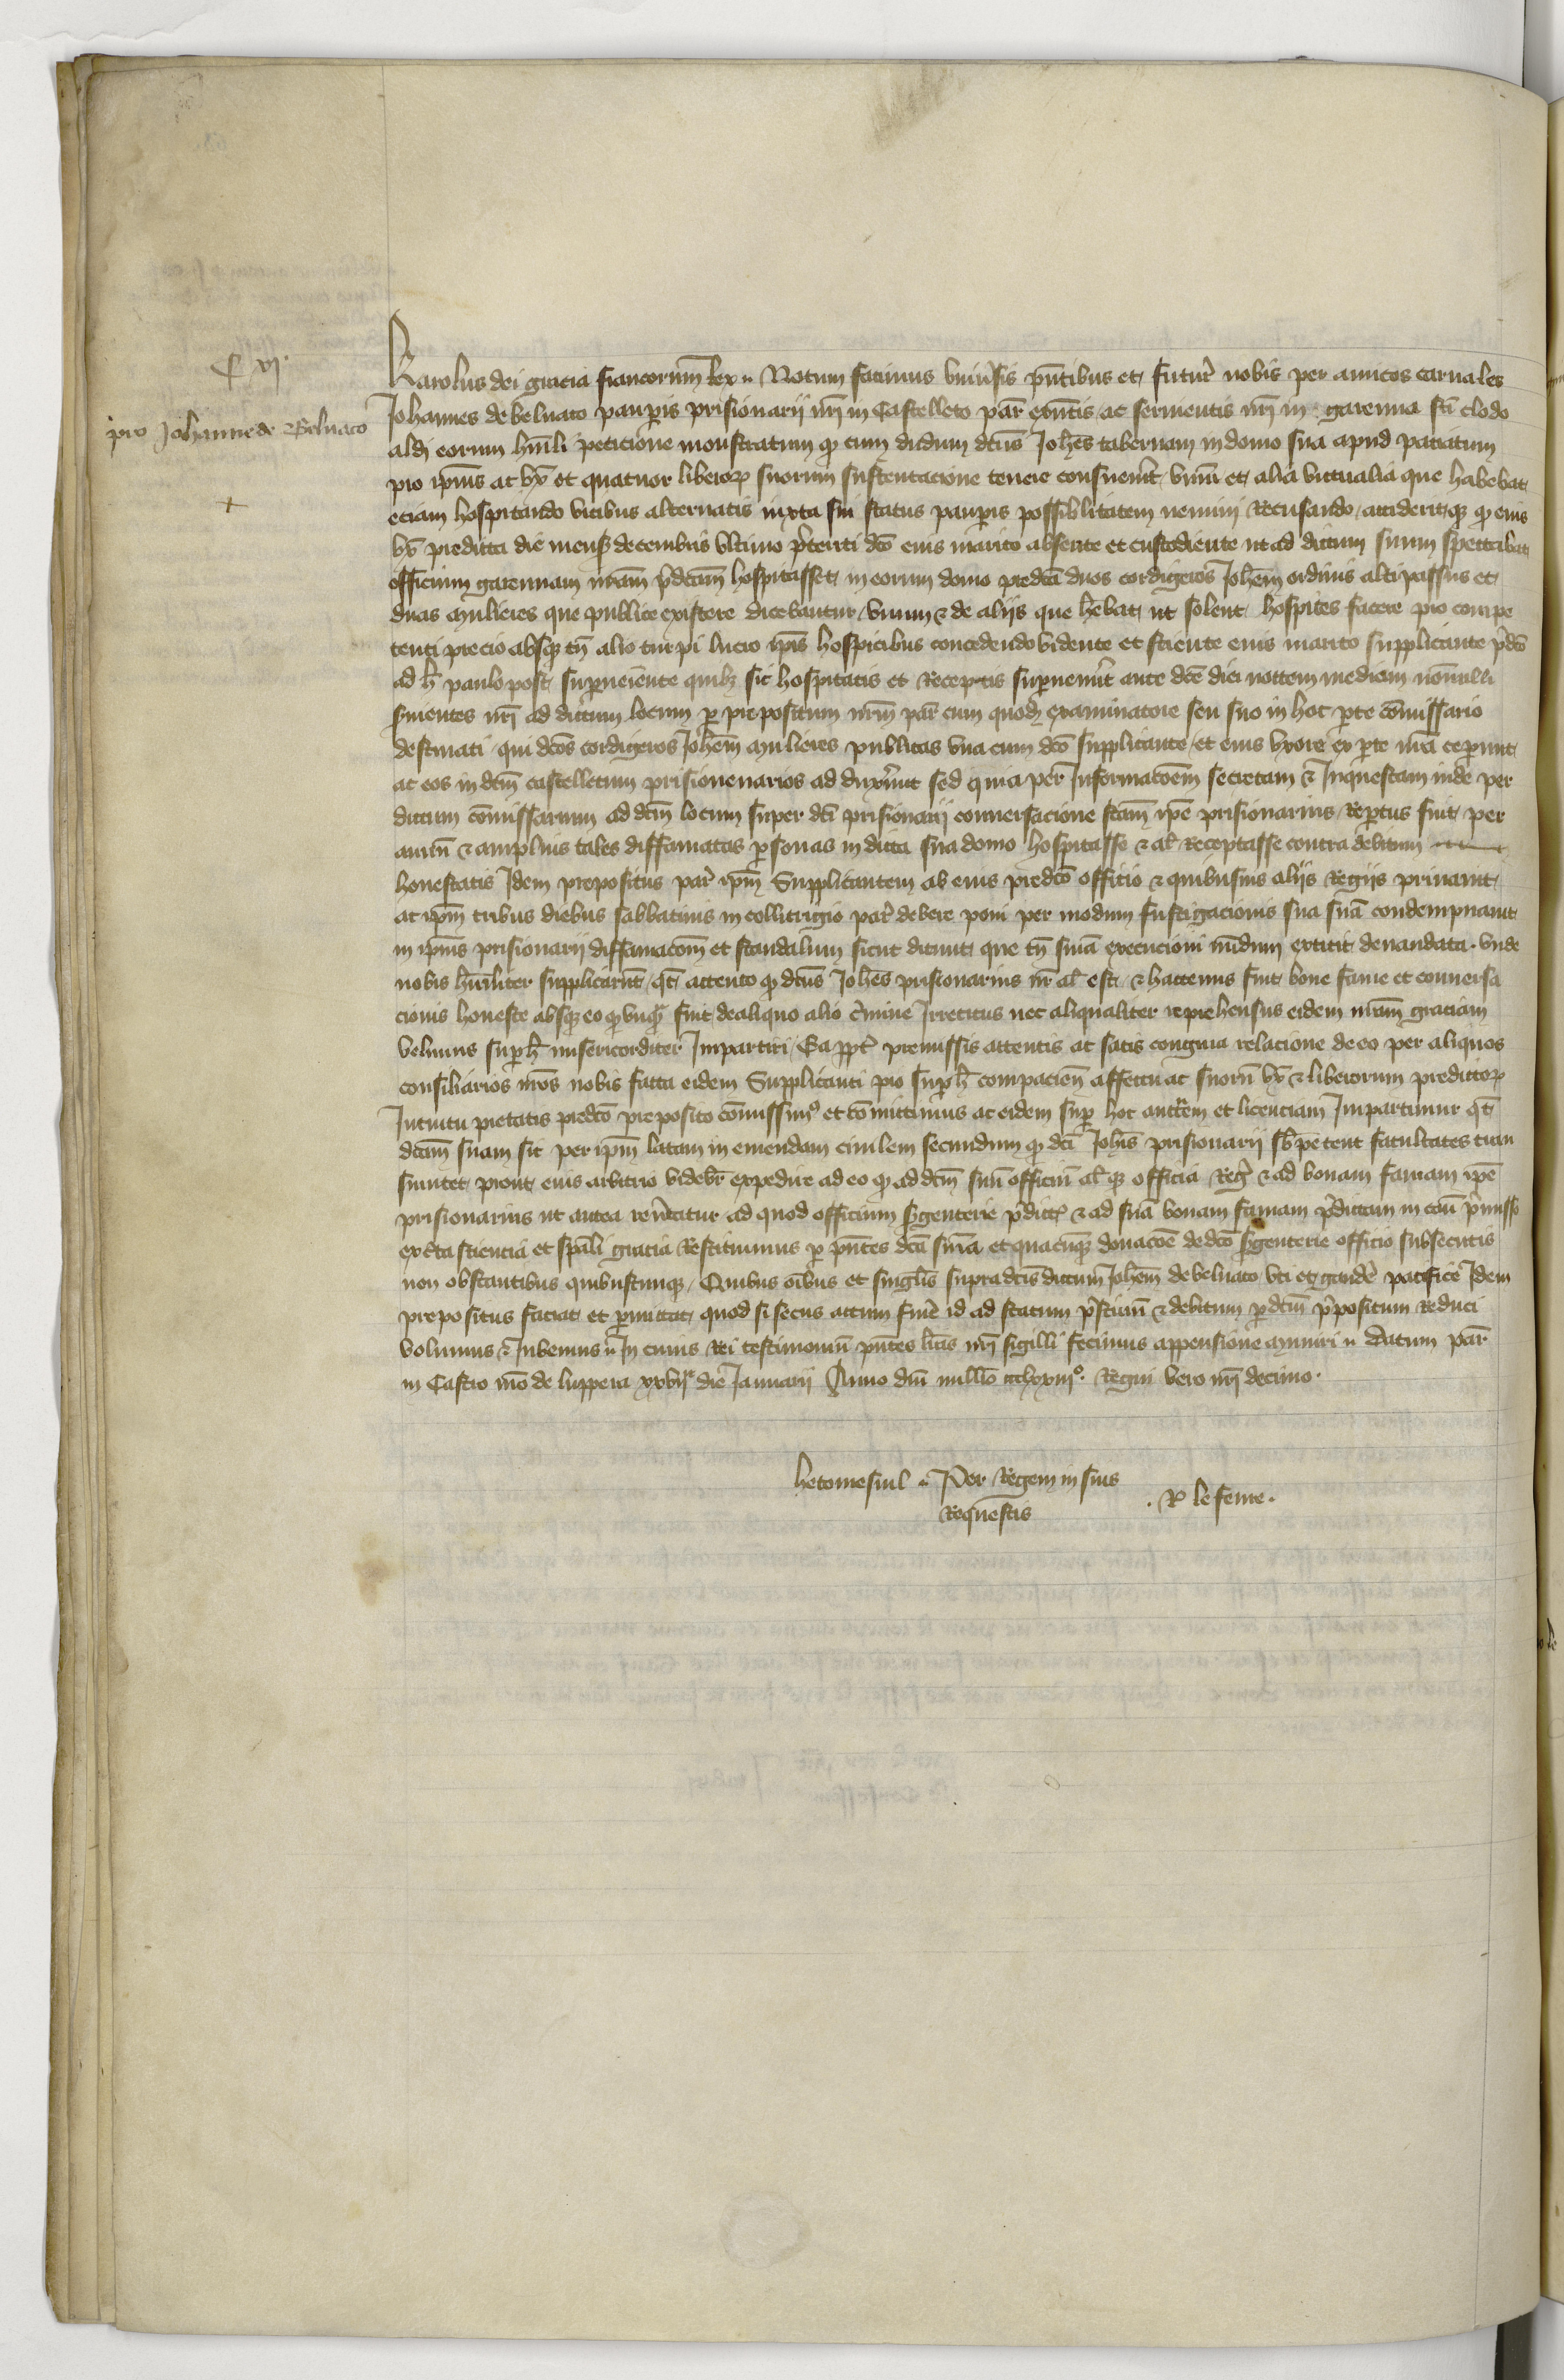 C vi.
pro Johanne de Belvaco
Karolus dei gracia francorum Rex. Notum facimus univsis pntibus et futur nobis per amicos carnales
Johannes de belvaco pauperis prisionarii nri in Castelleto par exntis ac servientis nri in garenna sti clodo
aldi eorum humli peticione monstratum q cum dictus Johes tabernam in domo sua apud
pro ipius ac ux et quatuor liberor suorum sustentacione tenere consueverit vinum et alia victualia que habebat
eciam hospitando vicibus alternatis juxta sui status pauperis possibilitatem nemini Recusando acciderit q eius
ux predicta die mens decembris ultimo pteriti dco eius marito absente et custodiente ut ad dictum suum spectabat
officium garennam nram pdcam hospitasset in eorum domo predca duos cordigeros Johem ordinis altipassus et
duas mulieres que publice existere dicebantur vinum & de aliis que hebat ut solent hospites facere pro compe
tenti precio absq tn alio turpi lucro ipis hospitibus concedendo vidente et sciente eius marito supplicante pdco
ad h paulo post superveniente quib sic hospitatis et Receptis supervenerut ante dce diei noctem mediam nonnulli
svientes nri ad dictum locum per prepositum nrm par cum quod examinatore seu suo in hoc parte comissario
destinati qui dcos cordigeros Johem mulieres publicas una cum dco supplicante et eius uxore ex parte nra ceperunt
ac eos in dcm castelletum prisionenarios adduxerut sed quia per Informacoem secretam & Inquestam inde per
dictum comissarium ad dcm locum super dci prisionarii conversacione fcam ipe prisionarius Repertus fuit per
annu & amplius tales diffamatas personas in dicta sua domo hospitasse & al Receptasse contra debitum
honestatis Idem prepositus par ipm Supplicantem ab eius predco officio & quibusvis aliis Regiis privavit
ac ipm tribus diebus sabbatinis in collitrigio par debere poni per modum fustigacionis sua snia condempnavit
in ipius prisionarii diffamacoem et scandalum sicut dicunt que tn snia execucioni nundum extitit demandata. unde
nobis humiliter supplicarut qt attento q dcus Johes prisionarius nr al est & hactenus fuit bone fame et conversa
cionis honeste absq eo q unq fuit de aliquo alio crimine Irretitus nec aliqualiter reprehensus eidem nram graciam
velimus sup h misericorditer Impartiri Ea ppt premissis attentis ac satis congrua relacione de eo per aliquos
consiliarios nros nobis facta eidem Supplicanti pro sup h compacien affectu ac suoru ux & liberorum predictor
Intuitu pietatis predco preposito comissim et comittimus ac eidem super hoc auctem et licenciam Impartimur qt
dcam sniam sic per ipm latam in emendam civilem secundum q dci Johis prisionarii sb petent facultates tran
smutet prout eius arbitrio videbr expedire ad eo q ad dcm suu officiu alq officia Reg & ad bonam famam ipe
prisionarius ut antea revertatur ad quod officium sgenterie pdict & ad sua bonam famam pdictam in casu pmisso
ex certa sciencia et spali gracia Restituimus per pntes dca snia et quacunq donacoe de dco sgenterie officio subsecutis
non obstantibus quibuscunq. Quibus oibus et singlis supradcis dictum Johem de belvaco uti et gaudere pacifice Idem
prepositus faciat et permittat quod si secus actum fuerit id ad statum pstinu & debitum per dcm ppositum Reduci
volumus & Jubemus. In cuius Rei testimoniu pntes lras nri sigilli fecimus appensione muniri. Datum par
in Castro nro de luppera xxvij die Januarii Anno dni millo ccclxxiijo. Regni vero nri decimo.
hetomesnil. Per Regem in suis
Requestis
. P lefeme.